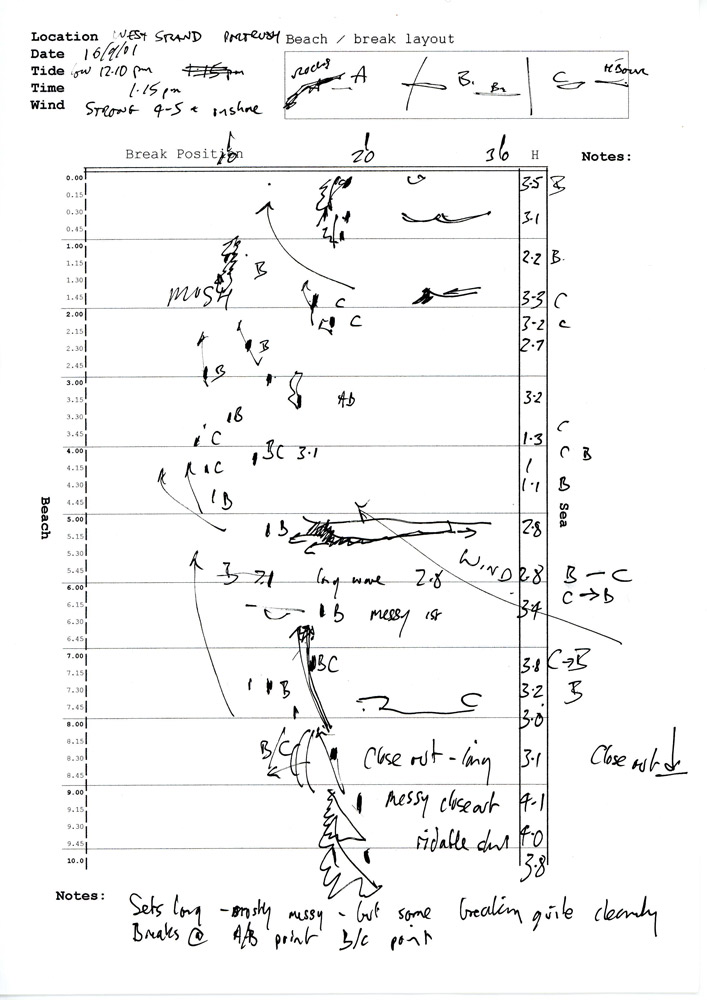 Location WEST STRAND PORTRUSH
Beach / break layout
Date 16/9/01
Tide low 12.10 pm 1:15 pm
Time 1.15 pm
Wind STRONG 4-5 inshore
ROCKS A B. C
Break Position 10 20 30 H Notes:
0.00 3.5 B
0.15
0.30 3.1
0.45
1.00 2.2 B.
1.15 B
1.30
1.45 MUSH C 3-3 C
2.00 C 3-2 C
2.15
2.30 B 2.7
2.45 B
3.00
3.15 AB 3.2
3.30 B
3.45 C 1.3 C
4.00 BC 3.1 C B
4.15 C 1
4.30 B 1.1 B
4.45
5.00 B 2.8
5.15
5.30
5.45 WIND
6.00 B long wave 2.8 2.8 B — C
C → B
6.15 B messy 3.4
6.30
6.45
7.00 BC 3.8 C→B
7.15
7.30 B 3.2 B
7.45 C 3.0
8.00
8.15 B/C
8.30 Close out - long 3.1 Close out ↓
8.45
9.00 messy closeout 4-1
9.15
9.30 ridable 4-0
9.45
10.0 3.8
Beach
Sea
Notes: Sets long - mostly messy - but some breaking quite cleanly
Breaks @ A/B point B/C point